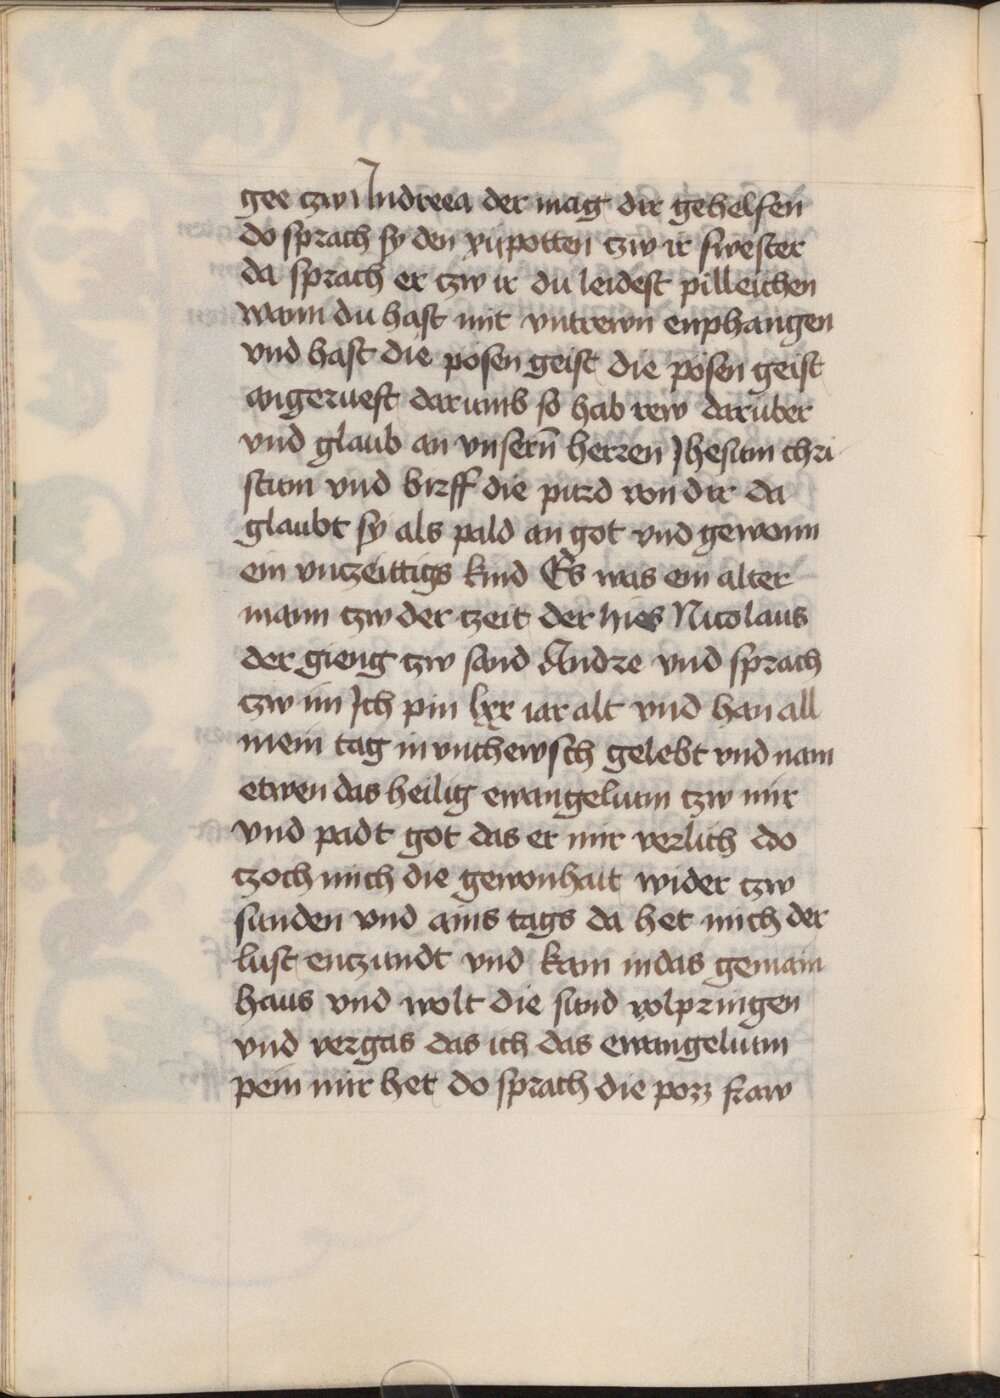 gee tzw Andreea der mag dir gehelfen
do sprach sy den xij potten tzw ir swester
da sprach er tzw ir du leidest pilleichen
wann du hast mit vntrewn enphangen
vnd hast die posen geist die pösen geist
angerueft darumb so hab rew darüber
vnd glaub an vnsern̄ herren Jhesum chri
stum vnd birff die purd von dir da
glaubt sy als pald an got vnd gewonn
ein vntzeittigs kind Es was ein alter
mann tzw der tzeit der hies Nicolaus
der gieng tzw sand Andre vnd sprach
tzw im Ich pin lxx iar alt vnd han all
mein tag in vnchewsch gelebt vnd nam
etwen das heilig ewangelium tzw mir
vnd padt got das er mir verlich do
tzoch mich die gewonhait wider tzw
sunden vnd ains tags da het mich der
lust entzundt vnd kam in das gemain
haus vnd wolt die sund volpringen
vnd vergas das ich das ewangelium
pein mir het do sprach die pozz fraw